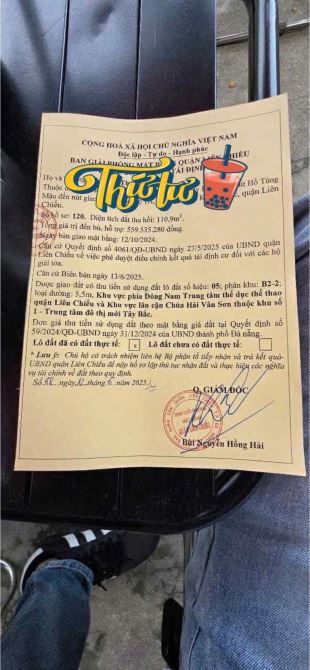 CỘNG HOÀ XÃ HỘI CHỦ NGHĨA VIỆT NAM
Độc lập - Tự do - Hạnh phúc
BAN GIẢI PHÓNG MẶT BẰNG QUẬN LIÊN CHIỂU
TÁI ĐỊNH
Thứ tư
Họ và
Thuộc từ Hồ Tùng
Mậu đến nút giao quận Liên
Chiểu.
Số hồ sơ: 120. Diện tích đất thu hồi: 110,9m².
Tổng giá trị đền bù, hỗ trợ: 559.535.280 đồng.
Ngày bàn giao mặt bằng: 12/10/2024.
Căn cứ Quyết định số 4061/QĐ-UBND ngày 27/5/2025 của UBND quận
Liên Chiểu về việc phê duyệt điều chỉnh kết quả tái định cư đối với các hộ
giải tỏa.
Căn cứ Biên bản ngày 13/6/2025.
Được giao đất có thu tiền sử dụng đất lô đất số hiệu: 05; phân khu: B2-2;
loại đường: 5,5m, Khu vực phía Đông Nam Trung tâm thể dục thể thao
quận Liên Chiểu và Khu vực lân cận Chùa Hải Vân Sơn thuộc khu số
1 - Trung tâm đô thị mới Tây Bắc.
Đơn giá thu tiền sử dụng đất theo mặt bằng giá đất tại Quyết định số
59/2024/QĐ-UBND ngày 31/12/2024 của UBND thành phố Đà nẵng.
Lô đất đã có đất thực tế: x Lô đất chưa có đất thực tế:
* Lưu ý: Chủ hộ có trách nhiệm liên hệ Bộ phận tiếp nhận và trả kết quả-
UBND quận Liên Chiểu để nộp hồ sơ lập thủ tục nhận đất và thực hiện các nghĩa
vụ tài chính về đất theo quy định.
Số ngày tháng năm 2025
Q. GIÁM ĐỐC
Bùi Nguyễn Hồng Hải